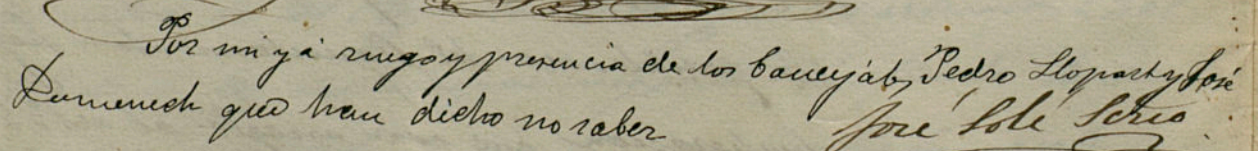 Por mi y á ruego y presencia de los Pedro Llopart y José
Domenech que han dicho no saber
José Solé